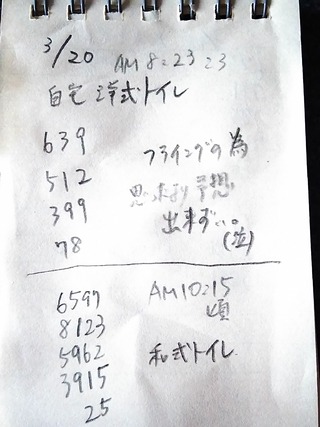 3/20 AM 8:23
自宅 洋式トイレ
639
フライングの為
512
思った より 予想
399
出来ず…。
78
(泣)
6597
AM10:15
頃
8123
5962
和式トイレ
3915
25